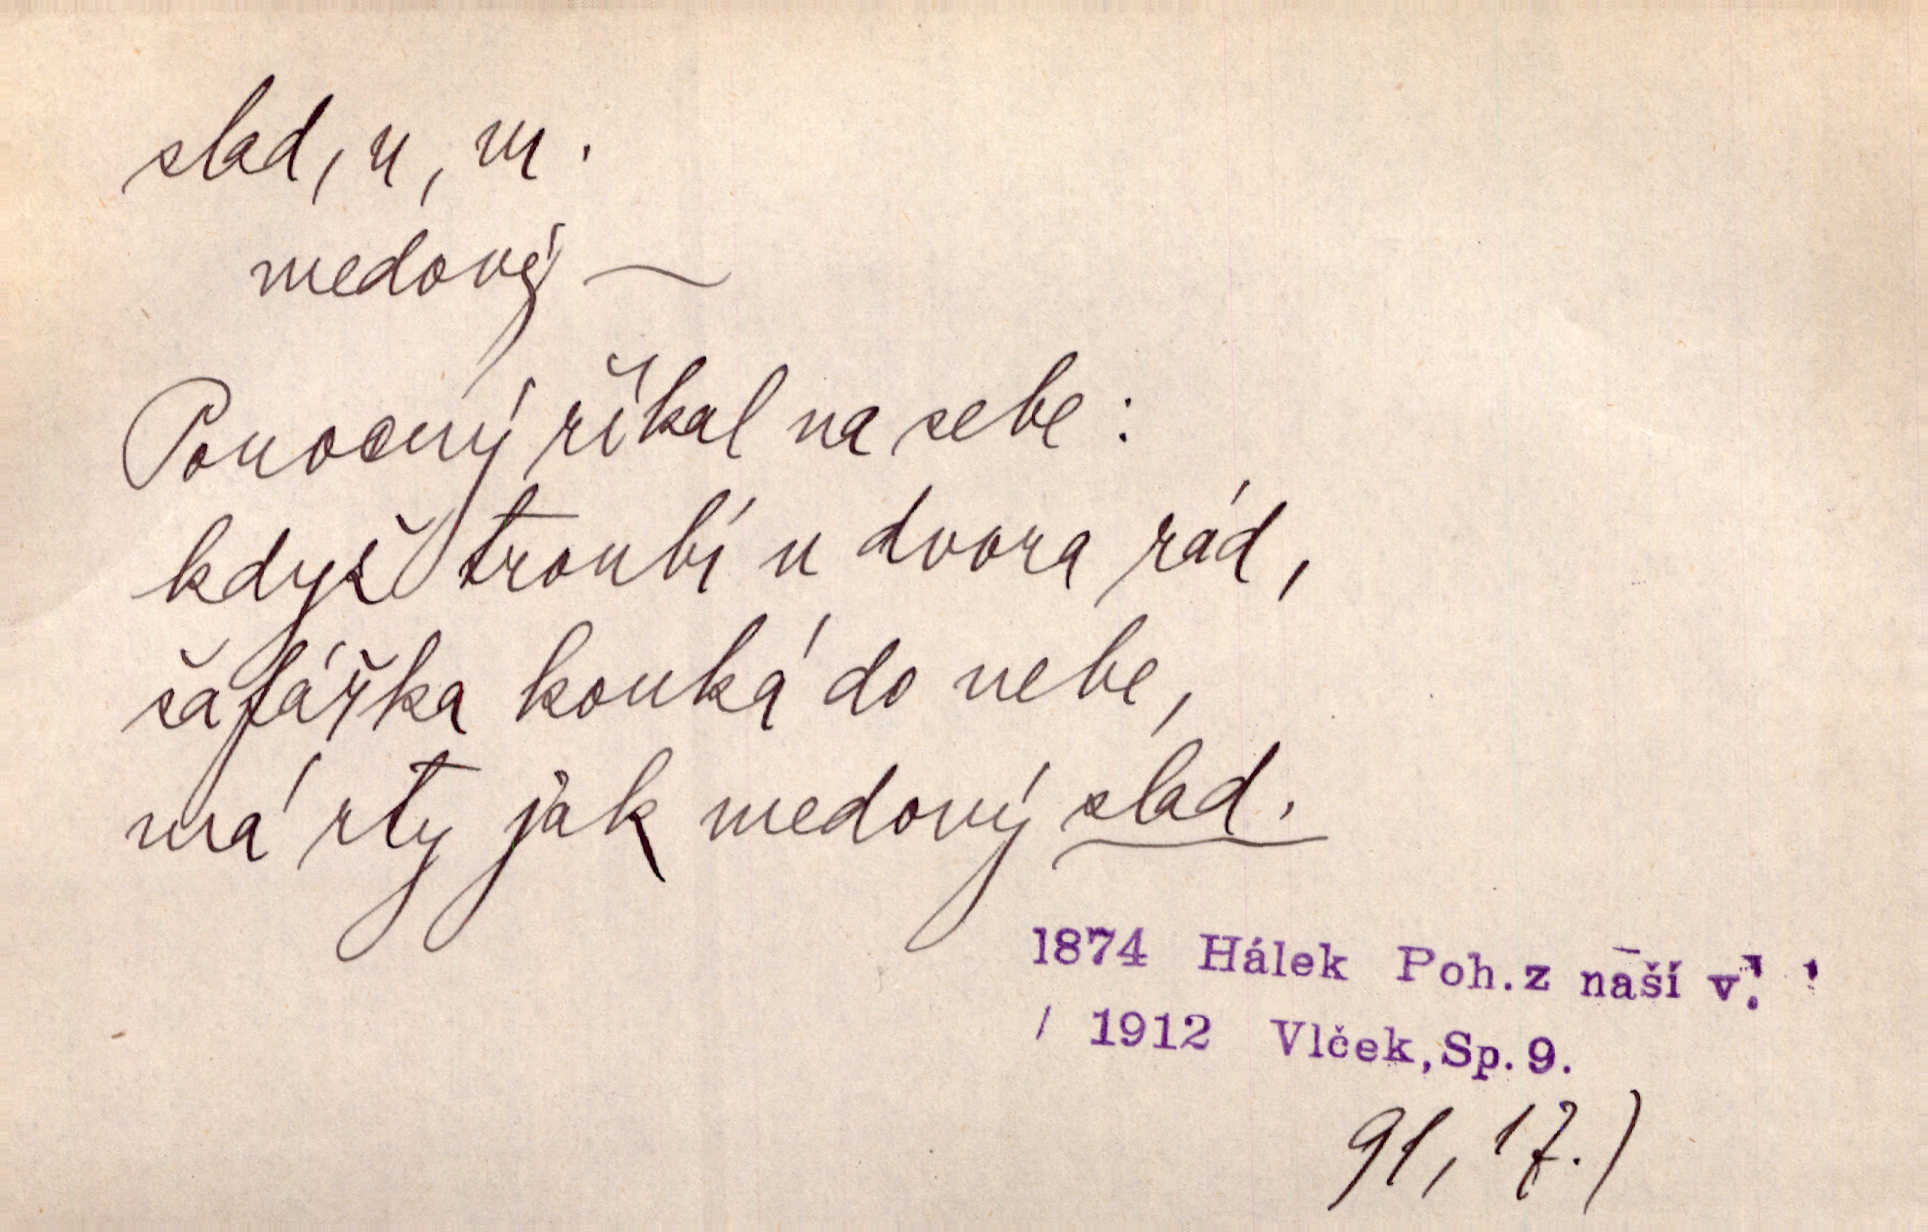 slad, u, m.
medový —
Ponocný říkal na sebe:
když troubí u dvora rád,
šafářka kouká do nebe,
má rty jak medový slad.
1874 Hálek Poh.z naší v.
/ 1912 Vlček,Sp.9.
91, 17.)